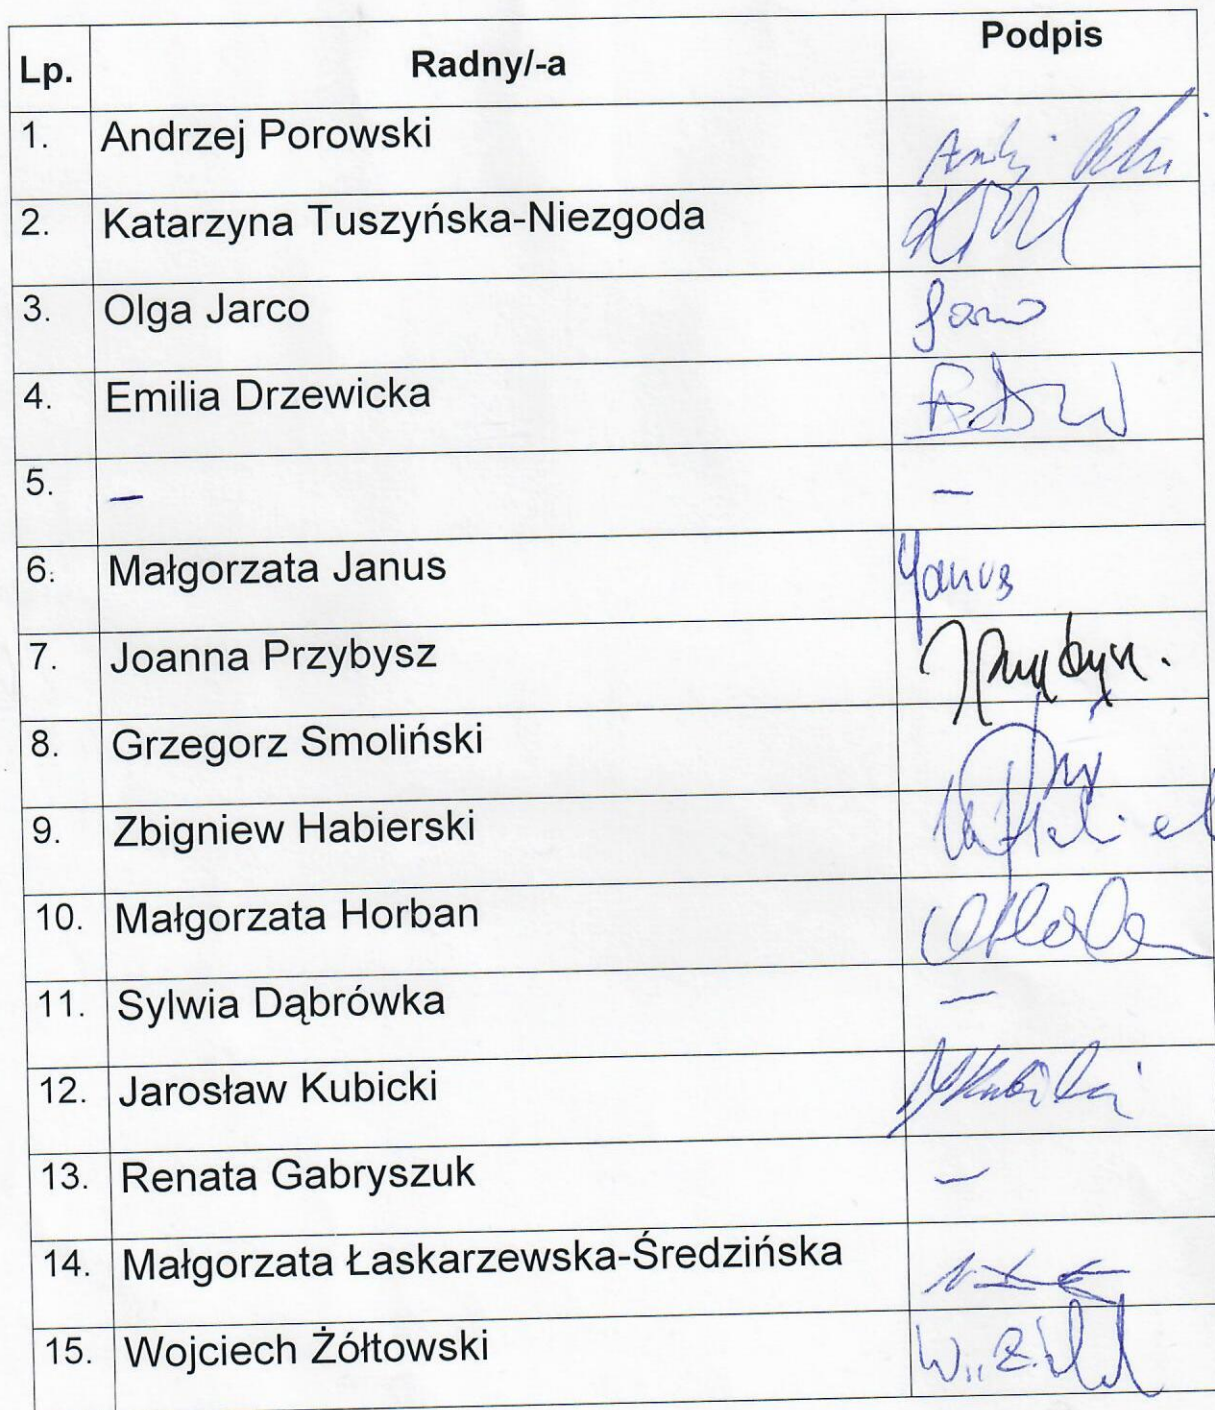 Lp. Radny/-a Podpis
1. Andrzej Porowski
2. Katarzyna Tuszyńska-Niezgoda
3. Olga Jarco
4. Emilia Drzewicka
5. – –
6. Małgorzata Janus Janus
7. Joanna Przybysz
8. Grzegorz Smoliński
9. Zbigniew Habierski
10. Małgorzata Horban
11. Sylwia Dąbrówka –
12. Jarosław Kubicki
13. Renata Gabryszuk –
14. Małgorzata Łaskarzewska-Średzińska
15. Wojciech Żółtowski